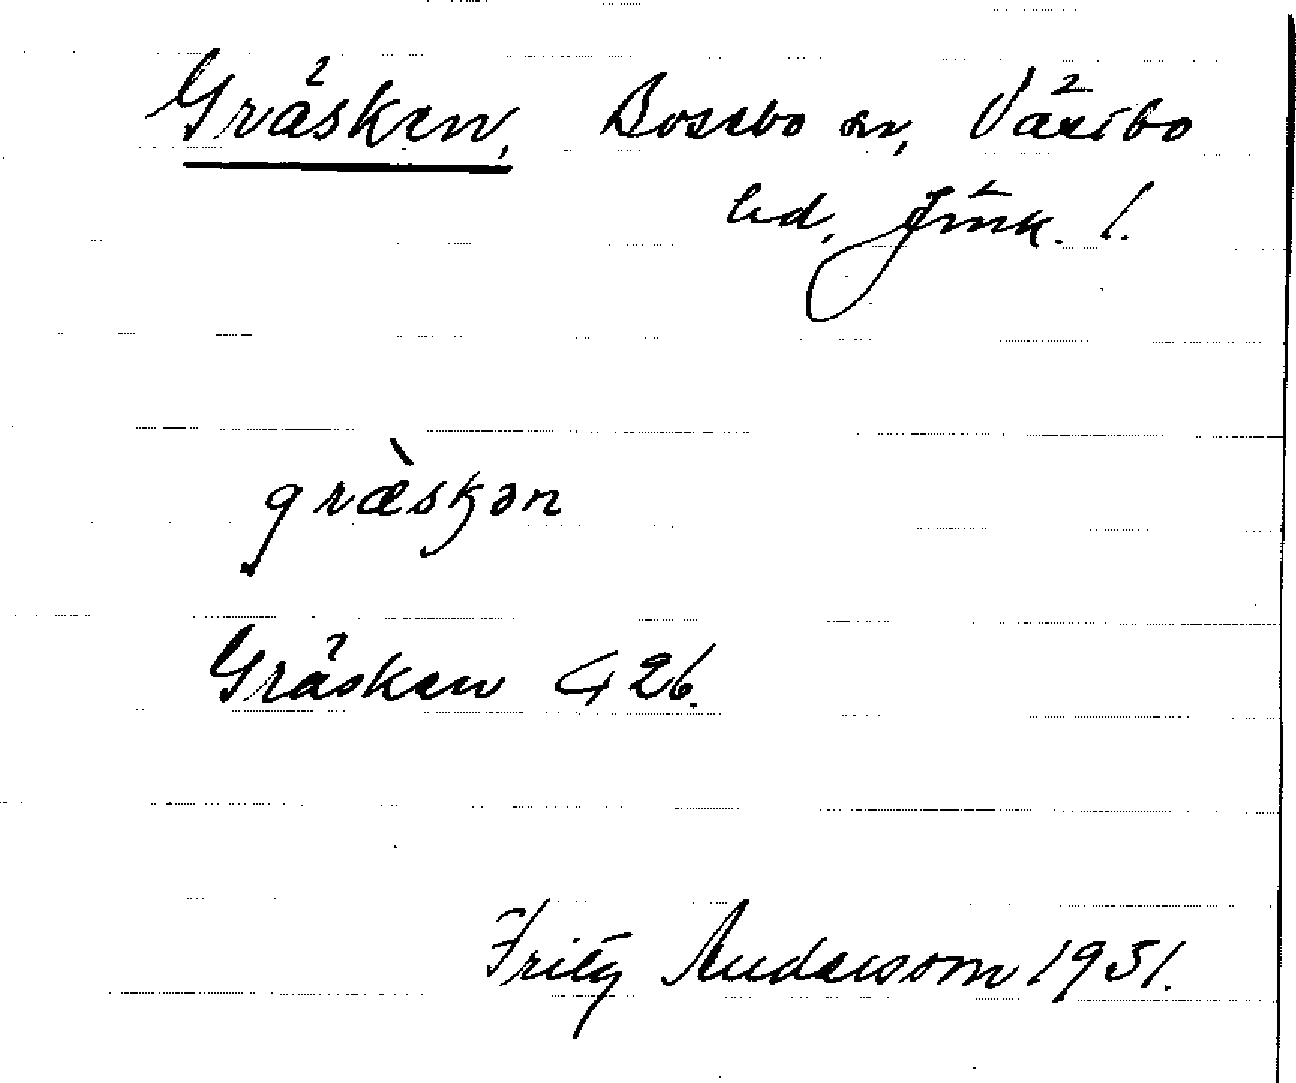 Gräsken, Bosebo sn, Västbo
hd, Jönk. l.
græ̀skən
Gräsken G 26.
Fritz Andersson 1951.